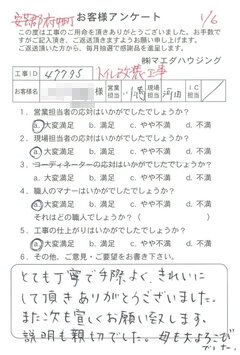 安芸郡府中町
お客様アンケート 1/6
この度は工事のご用命を頂きありがとうございました。お手数で
すがご記入頂き、ご返送頂きますようお願い申し上げます。
ご返送頂いた方から、毎月抽選で感謝品を進呈します。
㈱マエダハウジング
工事ID 47795 トイレ改装工事
様 営業担当 現場担当 河田 IC担当
1. 営業担当者の応対はいかがでしたでしょうか?
a. 大変満足 b. 満足 c. やや不満 d. 不満
2. 現場担当者の応対はいかがでしたでしょうか?
a. 大変満足 b. 満足 c. やや不満 d. 不満
3. コーディネーターの応対はいかがでしたでしょうか?
a. 大変満足 b. 満足 c. やや不満 d. 不満
4. 職人のマナーはいかがでしたでしょうか?
a. 大変満足 b. 満足 c. やや不満 d. 不満
それはどの職人でしょうか?(
5. 工事の仕上がりはいかがでしたでしょうか?
a. 大変満足 b. 満足 c. やや不満 d. 不満
6. その他、ご意見・ご要望をお書き下さい。
とても丁寧で手際よく、きれいに
して頂きありがとうございました。
また次も宜しくお願い致します。
説明も親切でした。母も大よろこび
でした。